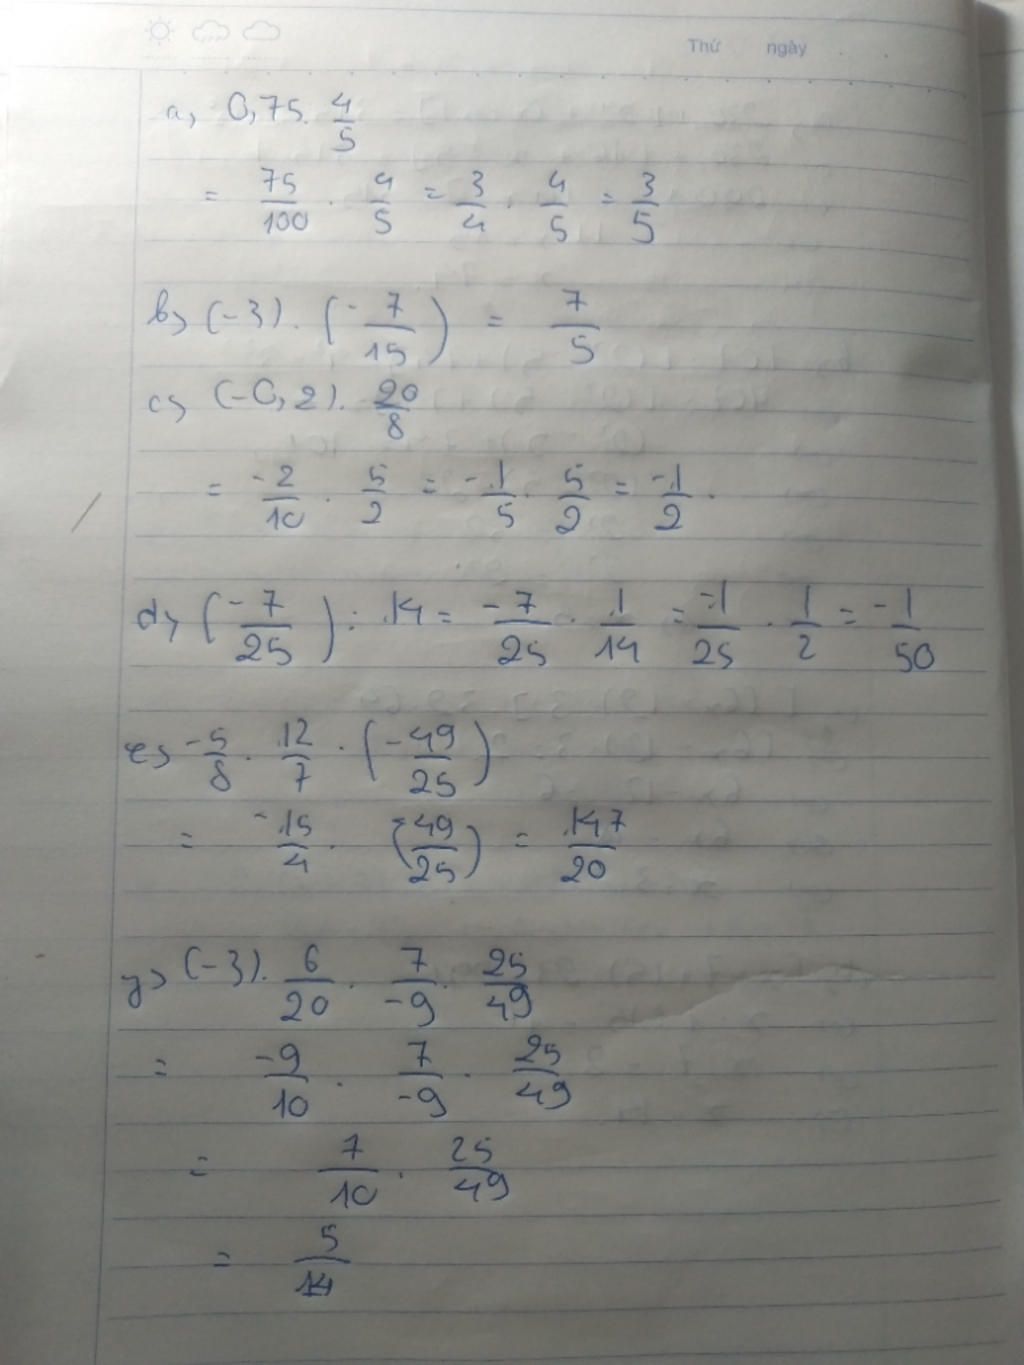 Thứ ngày
a, 0,75. 4/5
= 75/100 . 4/5 = 3/4 . 4/5 = 3/5
b, (-3) . (-7/15) = 7/5
c, (-0,2). 20/8
= -2/10 . 5/2 = -1/5 . 5/2 = -1/2 .
d, (-7/25) : 14 = -7/25 . 1/14 = -1/25 . 1/2 = -1/50
e, -5/8 . 12/7 . (-49/25)
= -15/4 . (-49/25) = 147/20
y, (-3). 6/20 . 7/-9 . 25/49
= -9/10 . 7/-9 . 25/49
= 7/10 . 25/49
= 5/14